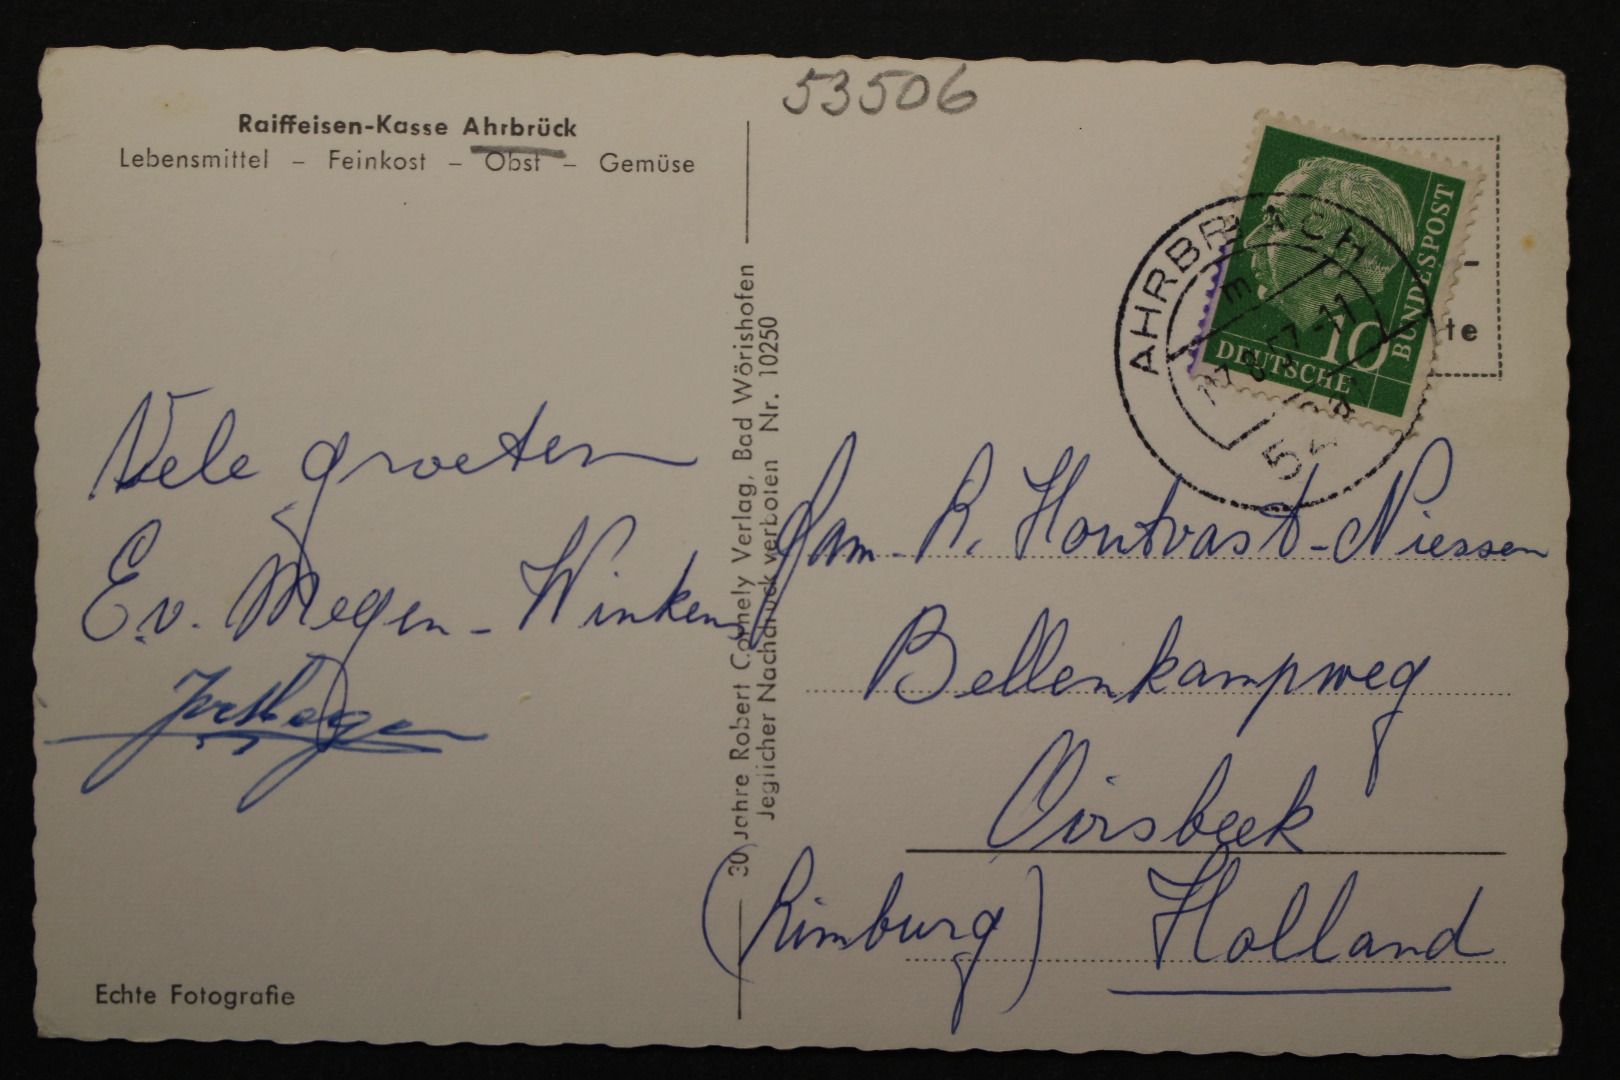 53506
Raiffeisen-Kasse Ahrbrück
Lebensmittel – Feinkost – Obst – Gemüse
DEUTSCHE
BUNDESPOST
10
te
Vele groeten
E. v. Megen - Winkens
30 Jahre Robert Cornely Verlag, Bad Wörishofen
Jeglicher Nachdruck verboten Nr. 10250
Fam. L. Houtvast - Niessen
Bellenkampweg
Oirsbeek
(Limburg) Holland
Echte Fotografie